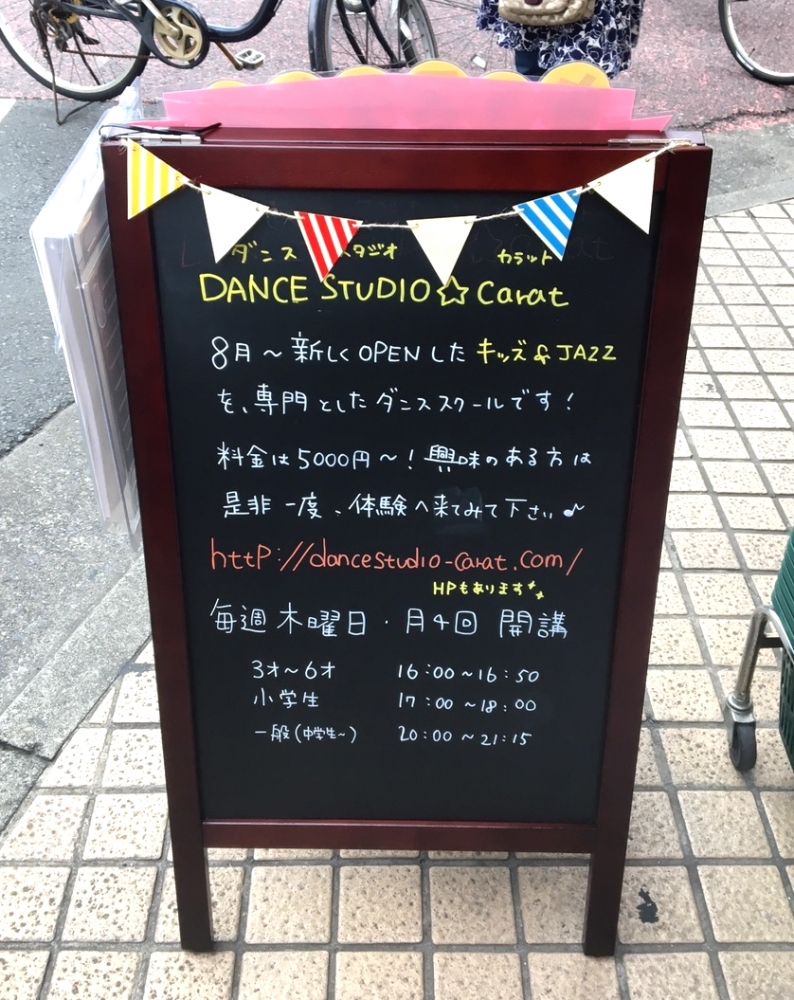 ダンス スタジオ カラット
DANCE STUDIO☆Carat
8月〜新しくOPENした キッズ&JAZZ
を、専門としたダンススクールです！
料金は5000円〜！興味のある方は
是非一度、体験へ来てみて下さい♪
http://dancestudio-carat.com/
HPもあります
毎週木曜日・月4回 開講
3才〜6才 16:00〜16:50
小学生 17:00〜18:00
一般(中学生〜) 20:00〜21:15